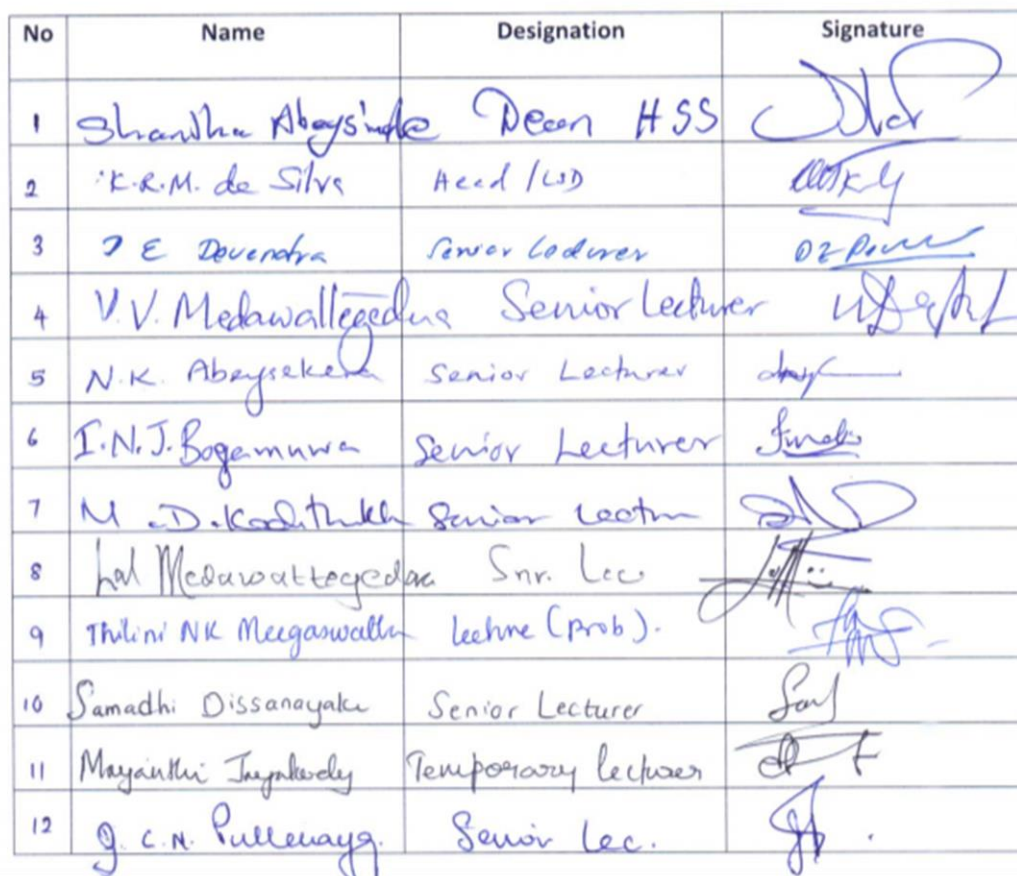 No Name Designation Signature
1 Shantha Abeysinghe Dean HSS
2 K.R.M. de Silva Head / LSD
3 D E Devendra Senior Lecturer
4 V.V. Medawattegedera Senior Lecturer
5 N.K. Abeysekera Senior Lecturer
6 I.N.J. Bogamuwa Senior Lecturer
7 M.D. Senior Lectur
8 Lal Medawattegedara Snr. Lec.
9 Thilini NK Meegaswatta lecture (prob).
10 Samadhi Dissanayake Senior Lecturer
11 Mayanthi Temporary lecturer
12 J. C. N. Pullenayg. Senior Lec.